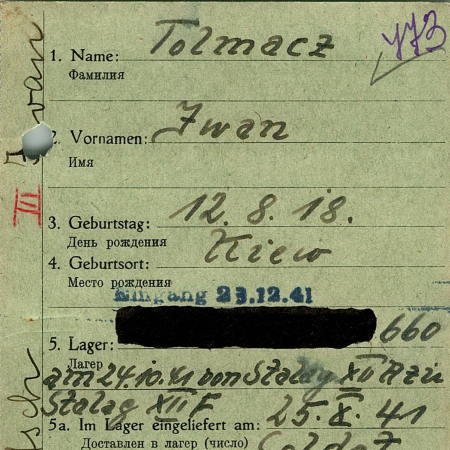 773
1. Name: Tolmacz
Фамилия
2. Vornamen: Iwan
Имя
III
3. Geburtstag: 12. 8. 18.
День рождения
4. Geburtsort: Kiew
Место рождения
Eingang 23.12.41
660
5. Lager:
Лагер
am 24.10.41 von Stalag XII A zu
Stalag XII F
5a. Im Lager eingeliefert am: 25. X. 41
Доставлен в лагер (число)